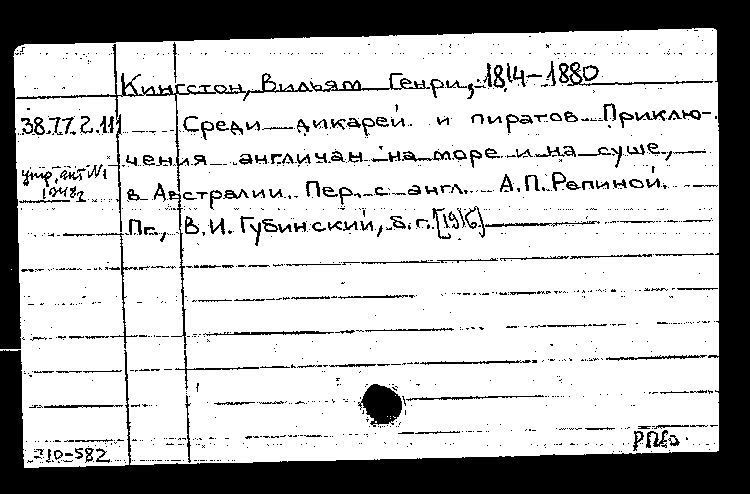 Кингстон, Вильям Генри, 1814-1880
38.77.2.111
Среди дикарей и пиратов. Приклю-
чения англичан на море и на суше,
в Австралии. Пер. с англ. А.П. Репиной.
Пг., В.И. Губинский, б.г. [1916]
утр. акт №1
1948г
310-582